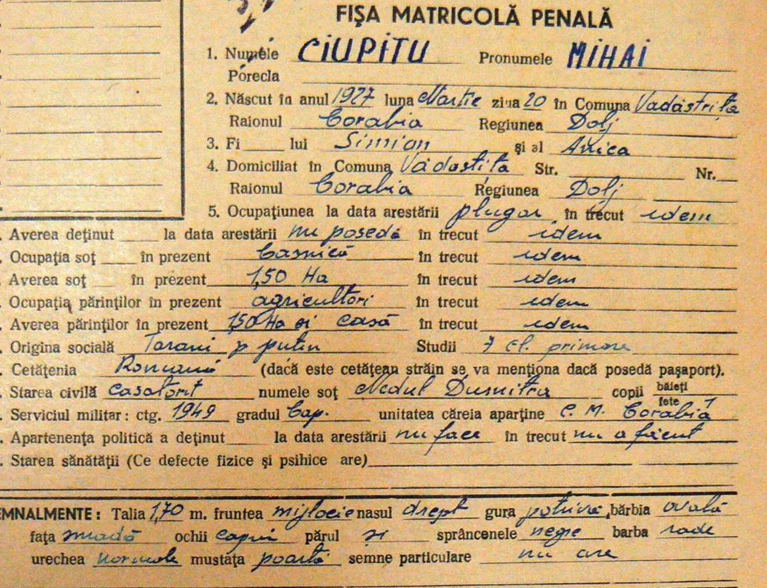 FIȘA MATRICOLĂ PENALĂ
1. Numele CIUPITU Pronumele MIHAI
Porecla
2. Născut în anul 1927 luna Martie ziua 20 în Comuna Vadastrita
Raionul Corabia Regiunea Dolj
3. Fi lui Simion și al Anica
4. Domiciliat în Comuna Vadastita Str. Nr.
Raionul Corabia Regiunea Dolj
5. Ocupațiunea la data arestării plugar în trecut idem
. Averea deținut la data arestării nu posedă în trecut idem
. Ocupația soț în prezent Casnică în trecut idem
. Averea soț în prezent 1,50 Ha în trecut idem
. Ocupația părinților în prezent agricultori în trecut idem
. Averea părinților în prezent 1,50 Ha și casă în trecut idem
. Origina socială Tarani p putin Studii 7 cl. primare
. Cetățenia Romană (dacă este cetățean străin se va menționa dacă posedă pașaport).
. Starea civilă casatorit numele soț Nedul Dumitra copii băieți
fete 1
. Serviciul militar: ctg. 1949 gradul Cap. unitatea căreia aparține C. M. Corabia
. Apartenența politică a deținut la data arestării nu face în trecut nu a făcut
. Starea sănătății (Ce defecte fizice și psihice are)
EMNALMENTE: Talia 1,70 m. fruntea mijlocie nasul drept gura potrivă bărbia ovală
fața smadă ochii caprui părul și sprâncenele negre barba rade
urechea normale mustața poartă semne particulare nu are